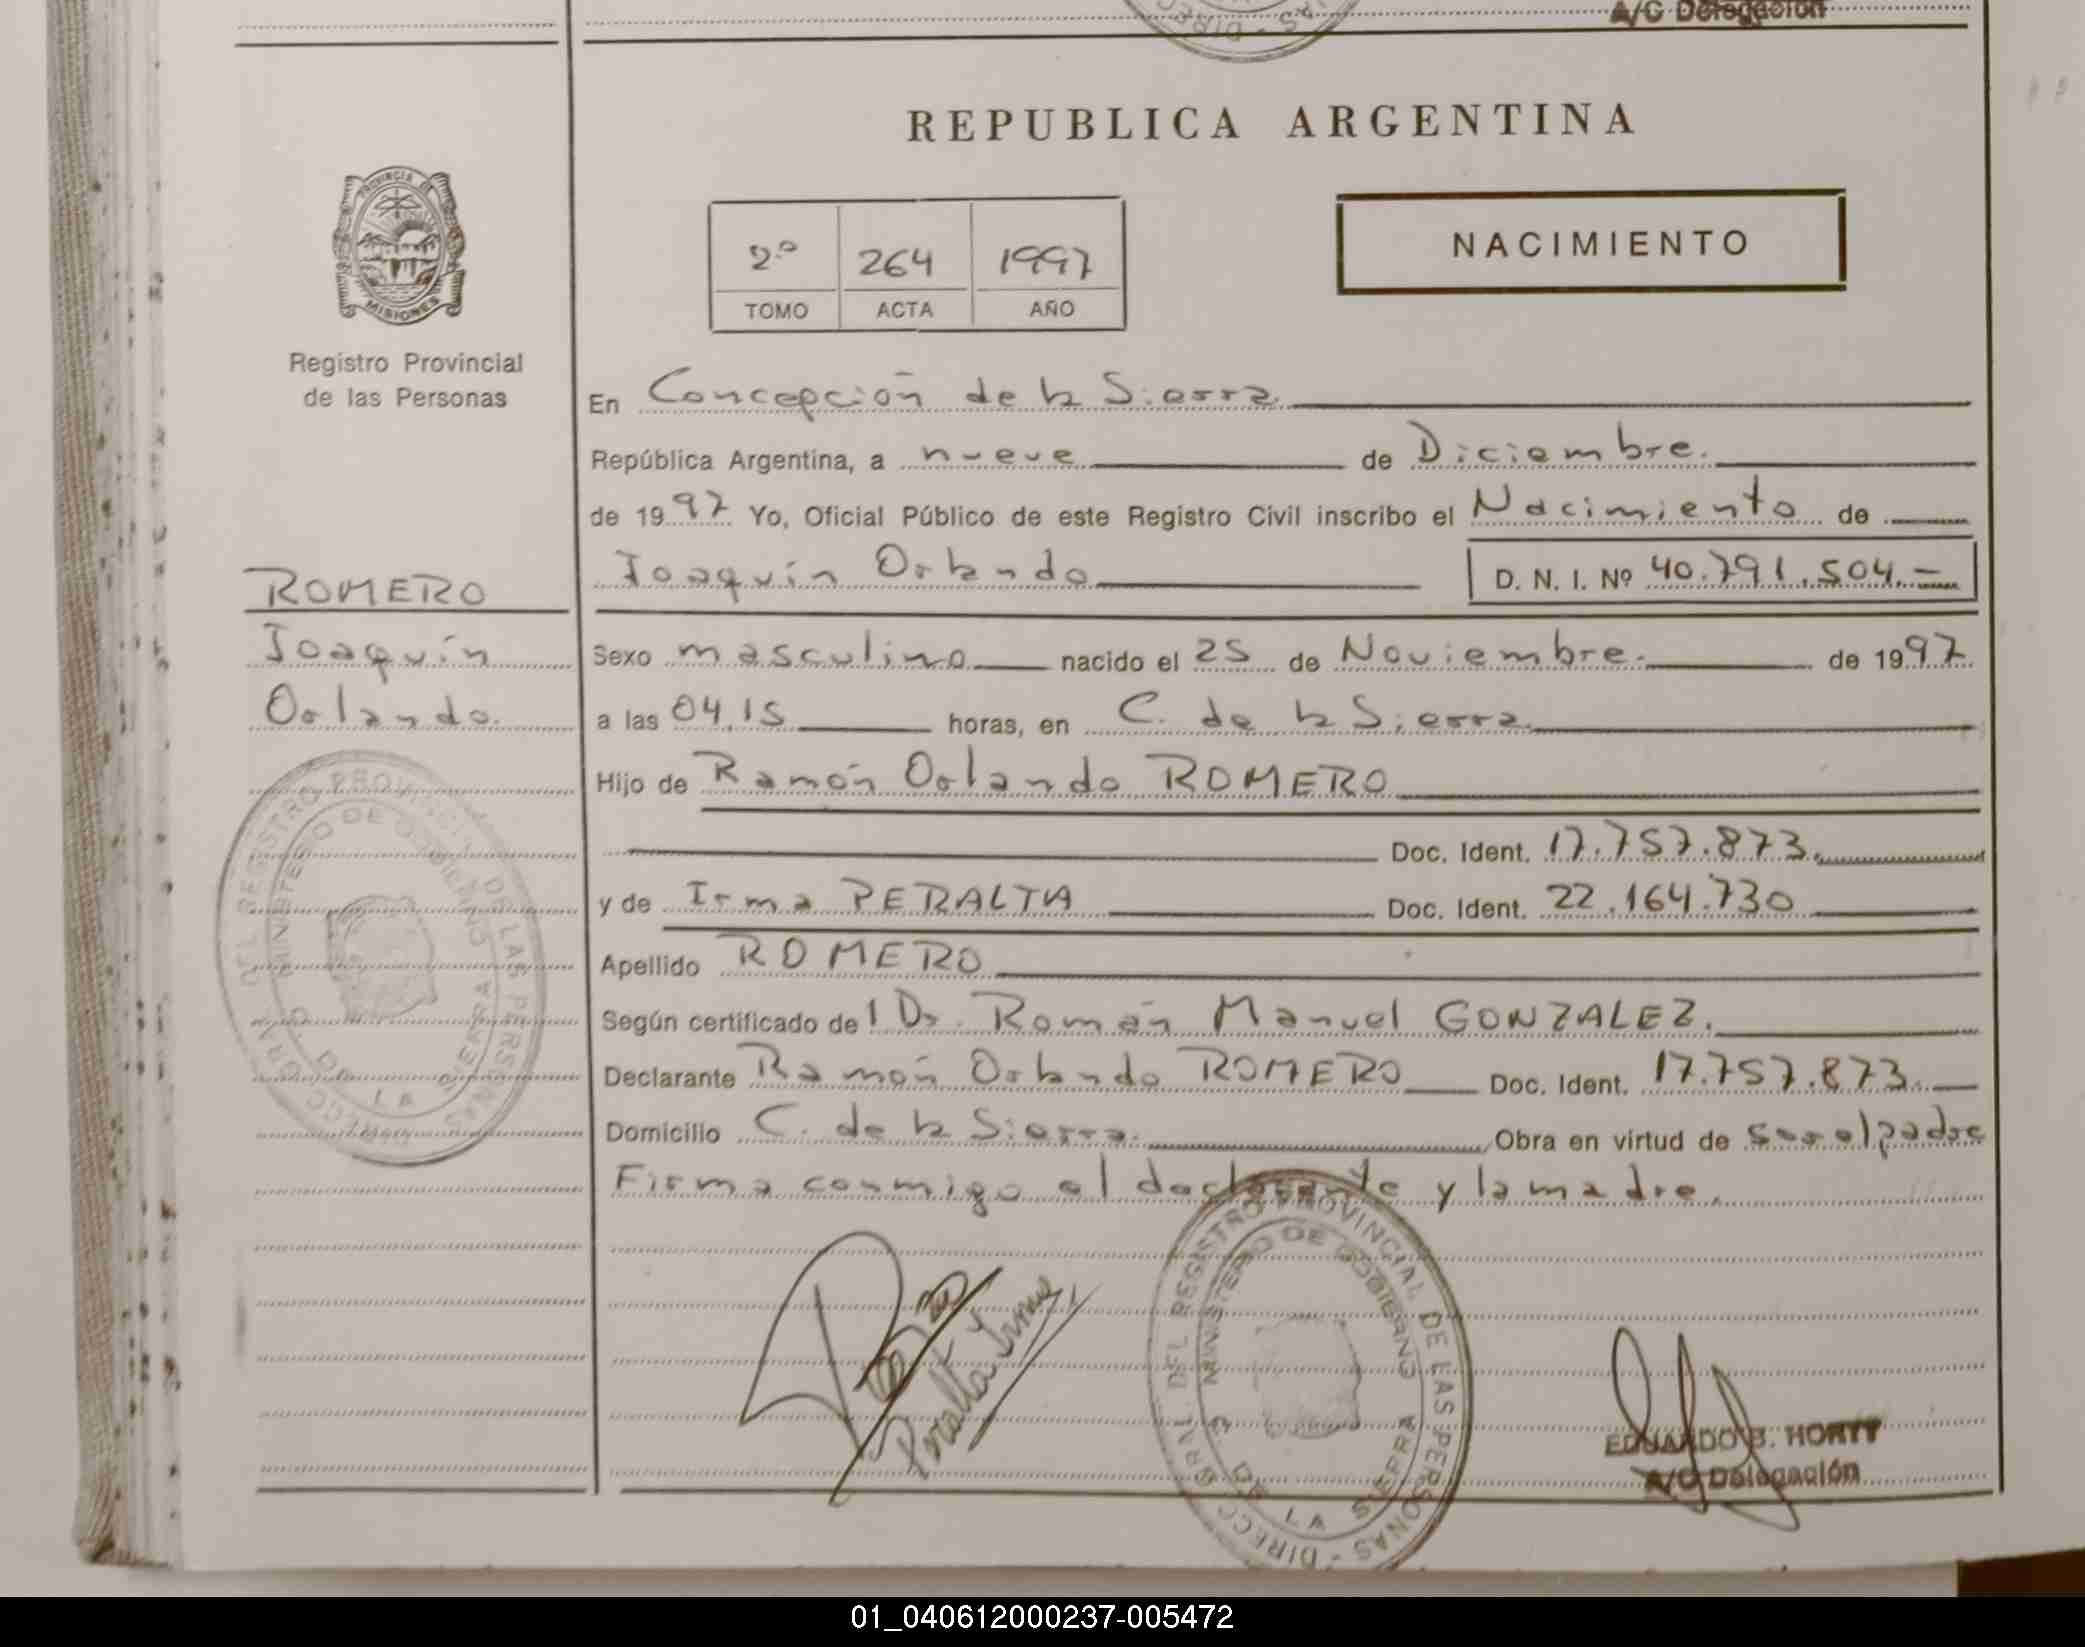 A/C Delegación
REPUBLICA ARGENTINA
PROVINCIA DE
MISIONES
2º 264 1997
TOMO ACTA AÑO
NACIMIENTO
Registro Provincial
de las Personas
En Concepción de la Sierra.
República Argentina, a nueve de Diciembre.
de 1997 Yo, Oficial Público de este Registro Civil inscribo el Nacimiento de
Joaquín Orlando D. N. I. Nº 40.791.504.-
ROMERO
Joaquín
Orlando.
Sexo masculino nacido el 25 de Noviembre. de 1997
a las 04.15 horas, en C. de la Sierra.
Hijo de Ramón Orlando ROMERO
Doc. Ident. 17.757.873.
y de Irma PERALTA Doc. Ident. 22.164.730
Apellido ROMERO
Según certificado del Dr. Román Manuel GONZALEZ.
Declarante Ramón Orlando ROMERO Doc. Ident. 17.757.873.
Domicilio C. de la Sierra. Obra en virtud de ser el padre
Firma conmigo el declarante y la madre.
DIRECC. GRAL. DEL REGISTRO PROVINCIAL DE LAS PERSONAS
MINISTERIO DE GOBIERNO
C. DE LA SIERRA
Peralta Irma
DIRECC. GRAL. DEL REGISTRO PROVINCIAL DE LAS PERSONAS -
MINISTERIO DE GOBIERNO
C. DE LA SIERRA
EDUARDO B. HORTT
A/C Delegación
01_040612000237-005472